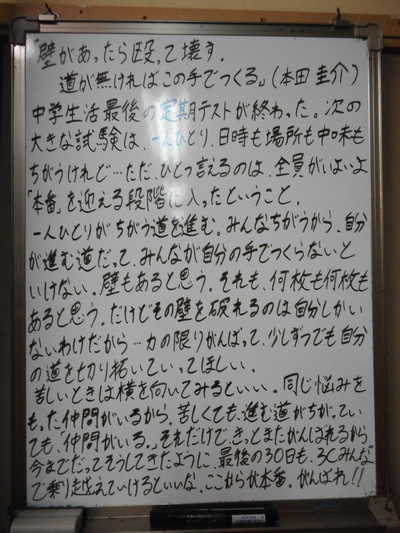 「壁があったら殴って壊す。
道が無ければこの手でつくる。」(本田圭介)
中学生活最後の定期テストが終わった。次の
大きな試験は、一人ひとり、日時も場所も中味も
ちがうけれど…ただ、ひとつ言えるのは、全員がいよいよ
「本番」を迎える段階に入ったということ。
一人ひとりがちがう道を進む。みんなちがうから、自分
が進む道だって、みんなが自分の手でつくらないと
いけない。壁もあると思う。それも、何枚も何枚も
あると思う。だけどその壁を破れるのは自分しかい
ないわけだから…力の限りがんばって、少しずつでも自分
の道を切り拓いていってほしい。
苦しいときは横を向いてみるといい。同じ悩みを
もった仲間がいるから。苦しくても、進む道がちがってい
ても、"仲間がいる"。それだけで、きっとまたがんばれるから。
今までだってそうしてきたように、最後の30日も、3Cみんな
で乗り越えていけるといいな。ここからが本番。がんばれ!!